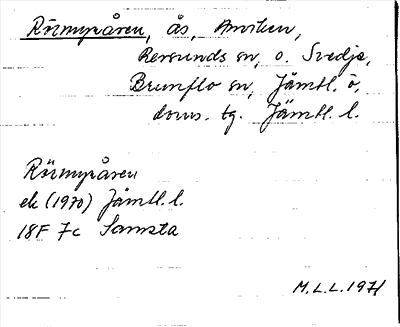 Rörmyråsen, ås, Anviken,
Revsunds sn, o. Svedje,
Brunflo sn, Jämtl. ö,
doms. tg. Jämtl. l.
Rörmyråsen
ek (1970) Jämtl. l.
18F 7c Samsta
M.L.L. 1971